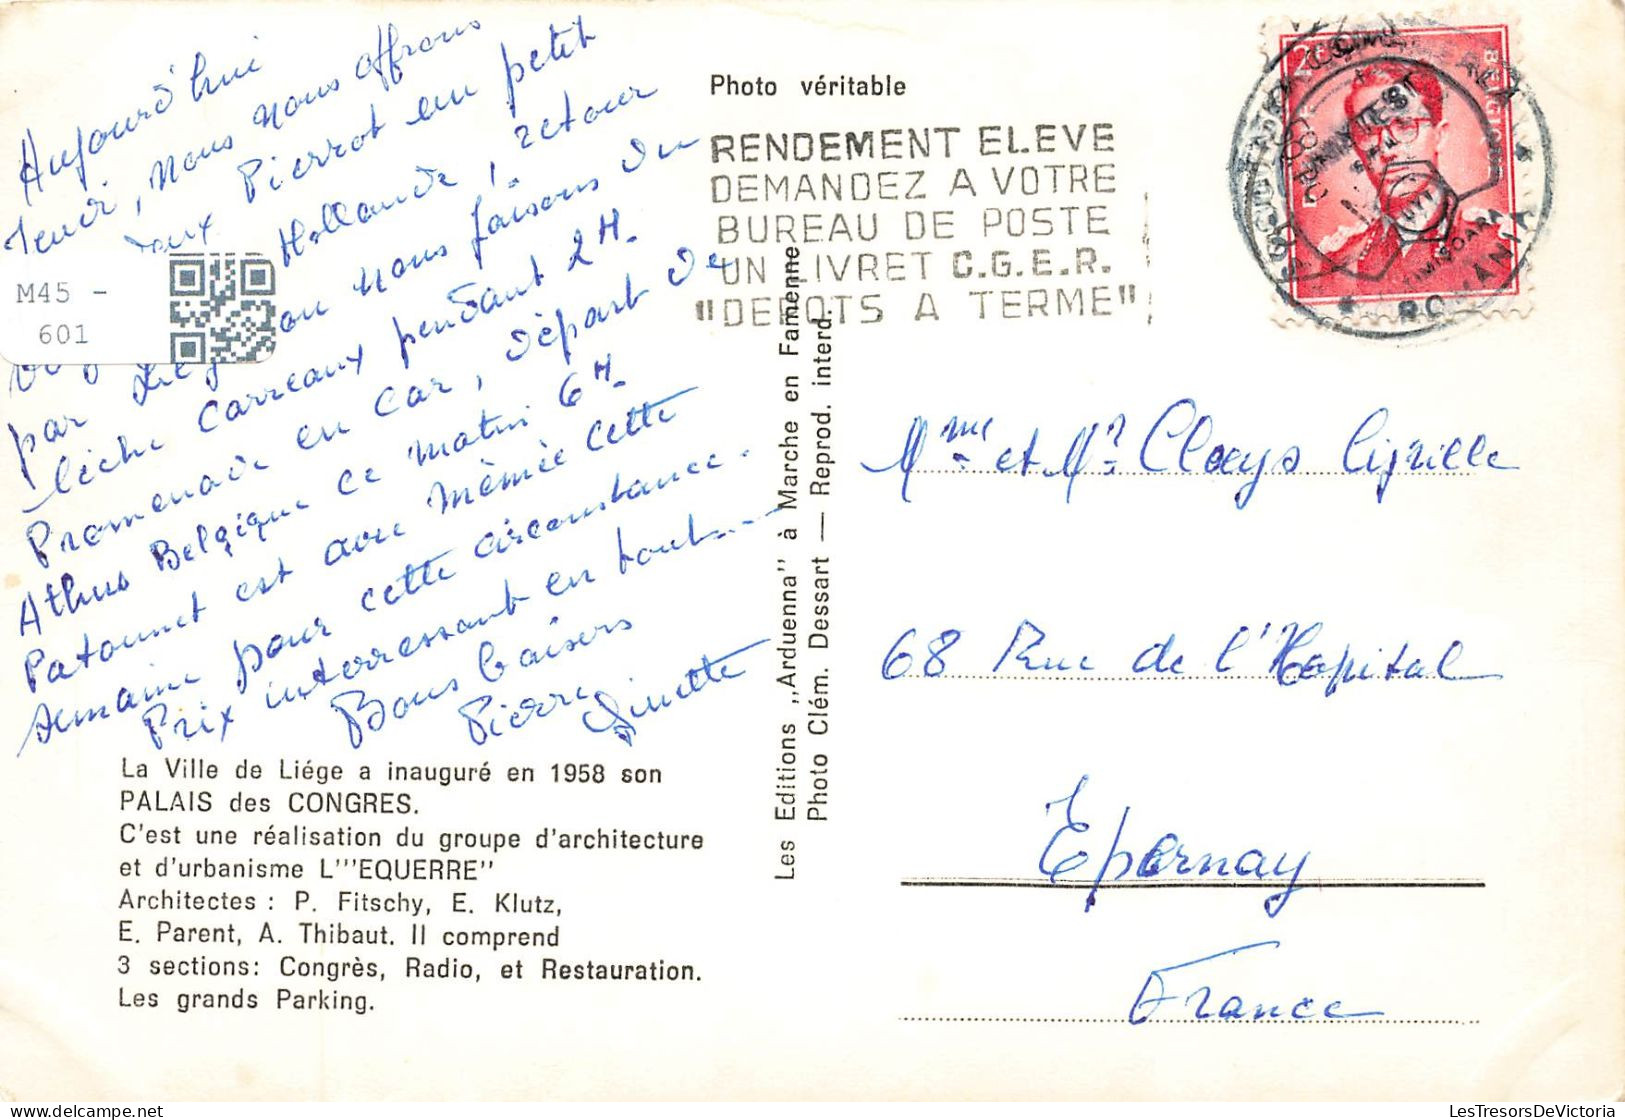 Aujourd'hui
Jeudi, nous nous offrons
deux Pierrot un petit
Hollande, retour
par Liège ou nous faisons du
lèche carreaux pendant 2H.
Promenade en car, départ de
Athus Belgique ce matin 6H.
Patounet est avec mémée cette
semaine pour cette circonstance.
Prix interressant en tout...
Bons baisers
Pierre
Ginette
M45 -
601
La Ville de Liége a inauguré en 1958 son
PALAIS des CONGRES.
C'est une réalisation du groupe d'architecture
et d'urbanisme L'"EQUERRE"
Architectes : P. Fitschy, E. Klutz,
E. Parent, A. Thibaut. Il comprend
3 sections: Congrès, Radio, et Restauration.
Les grands Parking.
Les Editions „Arduenna" à Marche en Famenne
Photo Clém. Dessart — Reprod. interd.
Photo véritable
RENDEMENT ELEVE
DEMANDEZ A VOTRE
BUREAU DE POSTE
UN LIVRET C.G.E.R.
"DEPOTS A TERME"
2F
BELGIQUE
TIMISOARA
ROMANIA
Mme et Mr Claeys Cyrille
68 Rue de l'Hopital
Epernay
France
LesTresorsDeVictoria.com